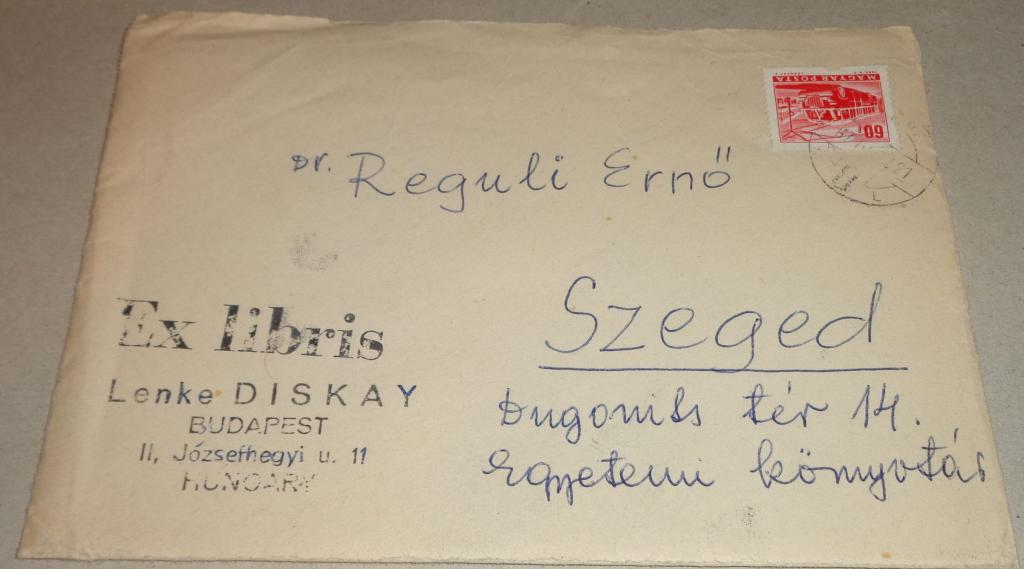 MAGYAR POSTA
60f
Dr. Reguli Ernő
Szeged
Dugonits tér 14.
Egyetemi könyvtár
Ex libris
Lenke DISKAY
BUDAPEST
II, Józsefhegyi u. 11
HUNGARY